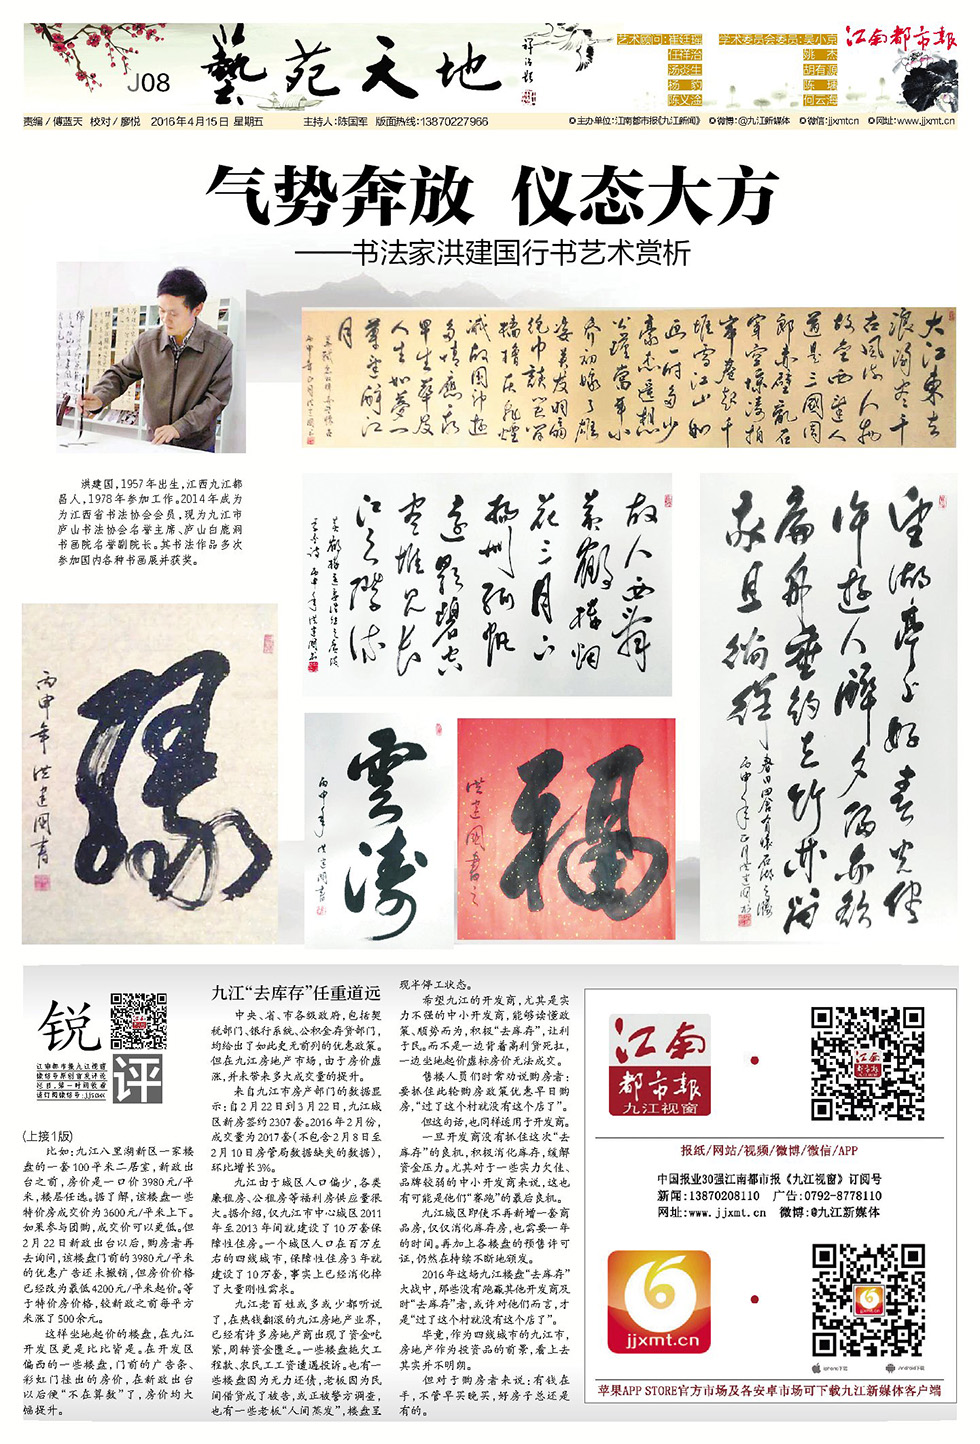 J08
藝苑天地
艺术顾问:崔廷瑶
任祥治
杨淤生
杨豹
陈义淦
学术委员会委员:吴小京
姚杰
胡有源
陈瑾
何云海
江南都市報
责编/傅蓝天 校对/廖悦 2016年4月15日 星期五
主持人:陈国军 版面热线:13870227966
主办单位:江南都市报《九江新闻》 微博:@九江新媒体 微信:jjxmtcn 网址:www.jjxmt.cn
气势奔放 仪态大方
——书法家洪建国行书艺术赏析
大江东去
浪淘尽千
古风流人物
故垒西边人
道是三國周
郎赤壁亂石
穿空惊涛拍
岸卷起千
堆雪江山如
画一时多少
豪杰遥想
公瑾當年小
乔初嫁了雄
姿英发羽扇
纶巾談笑间
樯櫓灰飛煙
滅故国神遊
多情應笑我
早生華发
人生如夢一
尊還酹江
月
洪建国,1957年出生,江西九江都
昌人,1978年参加工作。2014年成为
为江西省书法协会会员,现为九江市
庐山书法协会名誉主席、庐山白鹿洞
书画院名誉副院长。其书法作品多次
参加国内各种书画展并获奖。
故人西辞
黄鹤楼烟
花三月下
揚州孤帆
远影碧空
尽惟见长
江天際流
望湖亭上好春光佳
许游人醉夕阳亦欲
扁舟垂钓去竹井留
我且徜徉
緣
丙申年洪建國書
雲濤
丙申年洪建國書
福
洪建國書之
锐评
(上接1版)
比如:九江八里湖新区一家楼
盘的一套100平米二居室,新政出
台之前,房价是一口价3980元/平
米,楼层任选。据了解,该楼盘一些
特价房成交价为3600元/平米上下。
如果参与团购,成交价可以更低。但
2月22日新政出台以后,购房者再
去询问,该楼盘门前的3980元/平米
的优惠广告还未撤销,但房价价格
已经改为最低4200元/平米起价。等
于特价房价格,较新政之前每平方
米涨了500余元。
这样坐地起价的楼盘,在九江
开发区更是比比皆是。在开发区
偏西的一些楼盘,门前的广告条、
彩虹门挂出的房价,在新政出台
以后便“不在算数”了,房价均大
幅提升。
九江“去库存”任重道远
中央、省、市各级政府,包括契
税部门、银行系统、公积金存贷部门,
均给出了如此史无前列的优惠政策。
但在九江房地产市场,由于房价虚
涨,并未带来多大成交量的提升。
来自九江市房产部门的数据显
示:自2月22日到3月22日,九江城
区新房签约2307套。2016年2月份,
成交量为2017套(不包含2月8日至
2月10日房管局数据缺失的数据),
环比增长3%。
九江由于城区人口偏少,各类
廉租房、公租房等福利房供应量很
大。据介绍,仅九江市中心城区2011
年至2013年间就建设了10万套保
障性住房。一个城区人口在百万左
右的四线城市,保障性住房3年就
建设了10万套,事实上已经消化掉
了大量刚性需求。
九江老百姓或多或少都听说
了,在热钱翻滚的九江房地产业界,
已经有许多房地产商出现了资金吃
紧,周转资金匮乏。一些楼盘拖欠工
程款、农民工工资遭遇投诉。也有一
些楼盘因为无力还债,老板因为民
间借贷成了被告,或正被警方调查,
也有一些老板“人间蒸发”,楼盘呈
现半停工状态。
希望九江的开发商,尤其是实
力不强的中小开发商,能够读懂政
策、顺势而为,积极“去库存”,让利
于民。而不是一边背着高利贷死扛,
一边坐地起价虚标房价无法成交。
售楼人员们时常劝说购房者:
要抓住此轮购房政策优惠早日购
房,“过了这个村就没有这个店了”。
但这句话,也同样适用于开发商。
一旦开发商没有抓住这次“去
库存”的良机,积极消化库存,缓解
资金压力。尤其对于一些实力欠佳、
品牌较弱的中小开发商来说,这也
有可能是他们“赛跑”的最后良机。
九江城区即使不再新增一套商
品房,仅仅消化库存房,也需要一年
的时间。再加上各楼盘的预售许可
证,仍然在持续不断地颁发。
2016年这场九江楼盘“去库存”
大战中,那些没有跑赢其他开发商及
时“去库存”者,或许对他们而言,才
是“过了这个村就没有这个店了”。
毕竟,作为四线城市的九江市,
房地产作为投资品的前景,看上去
其实并不明朗。
但对于购房者来说:有钱在
手,不管早买晚买,好房子总还是
有的。
江南
都市报
九江视窗
报纸/网站/视频/微博/微信/APP
中国报业30强江南都市报《九江视窗》订阅号
新闻:13870208110 广告:0792-8778110
网址:www.jjxmt.cn 微博:@九江新媒体
jjxmt.cn
iphone下载
Android下载
苹果APP STORE官方市场及各安卓市场可下载九江新媒体客户端